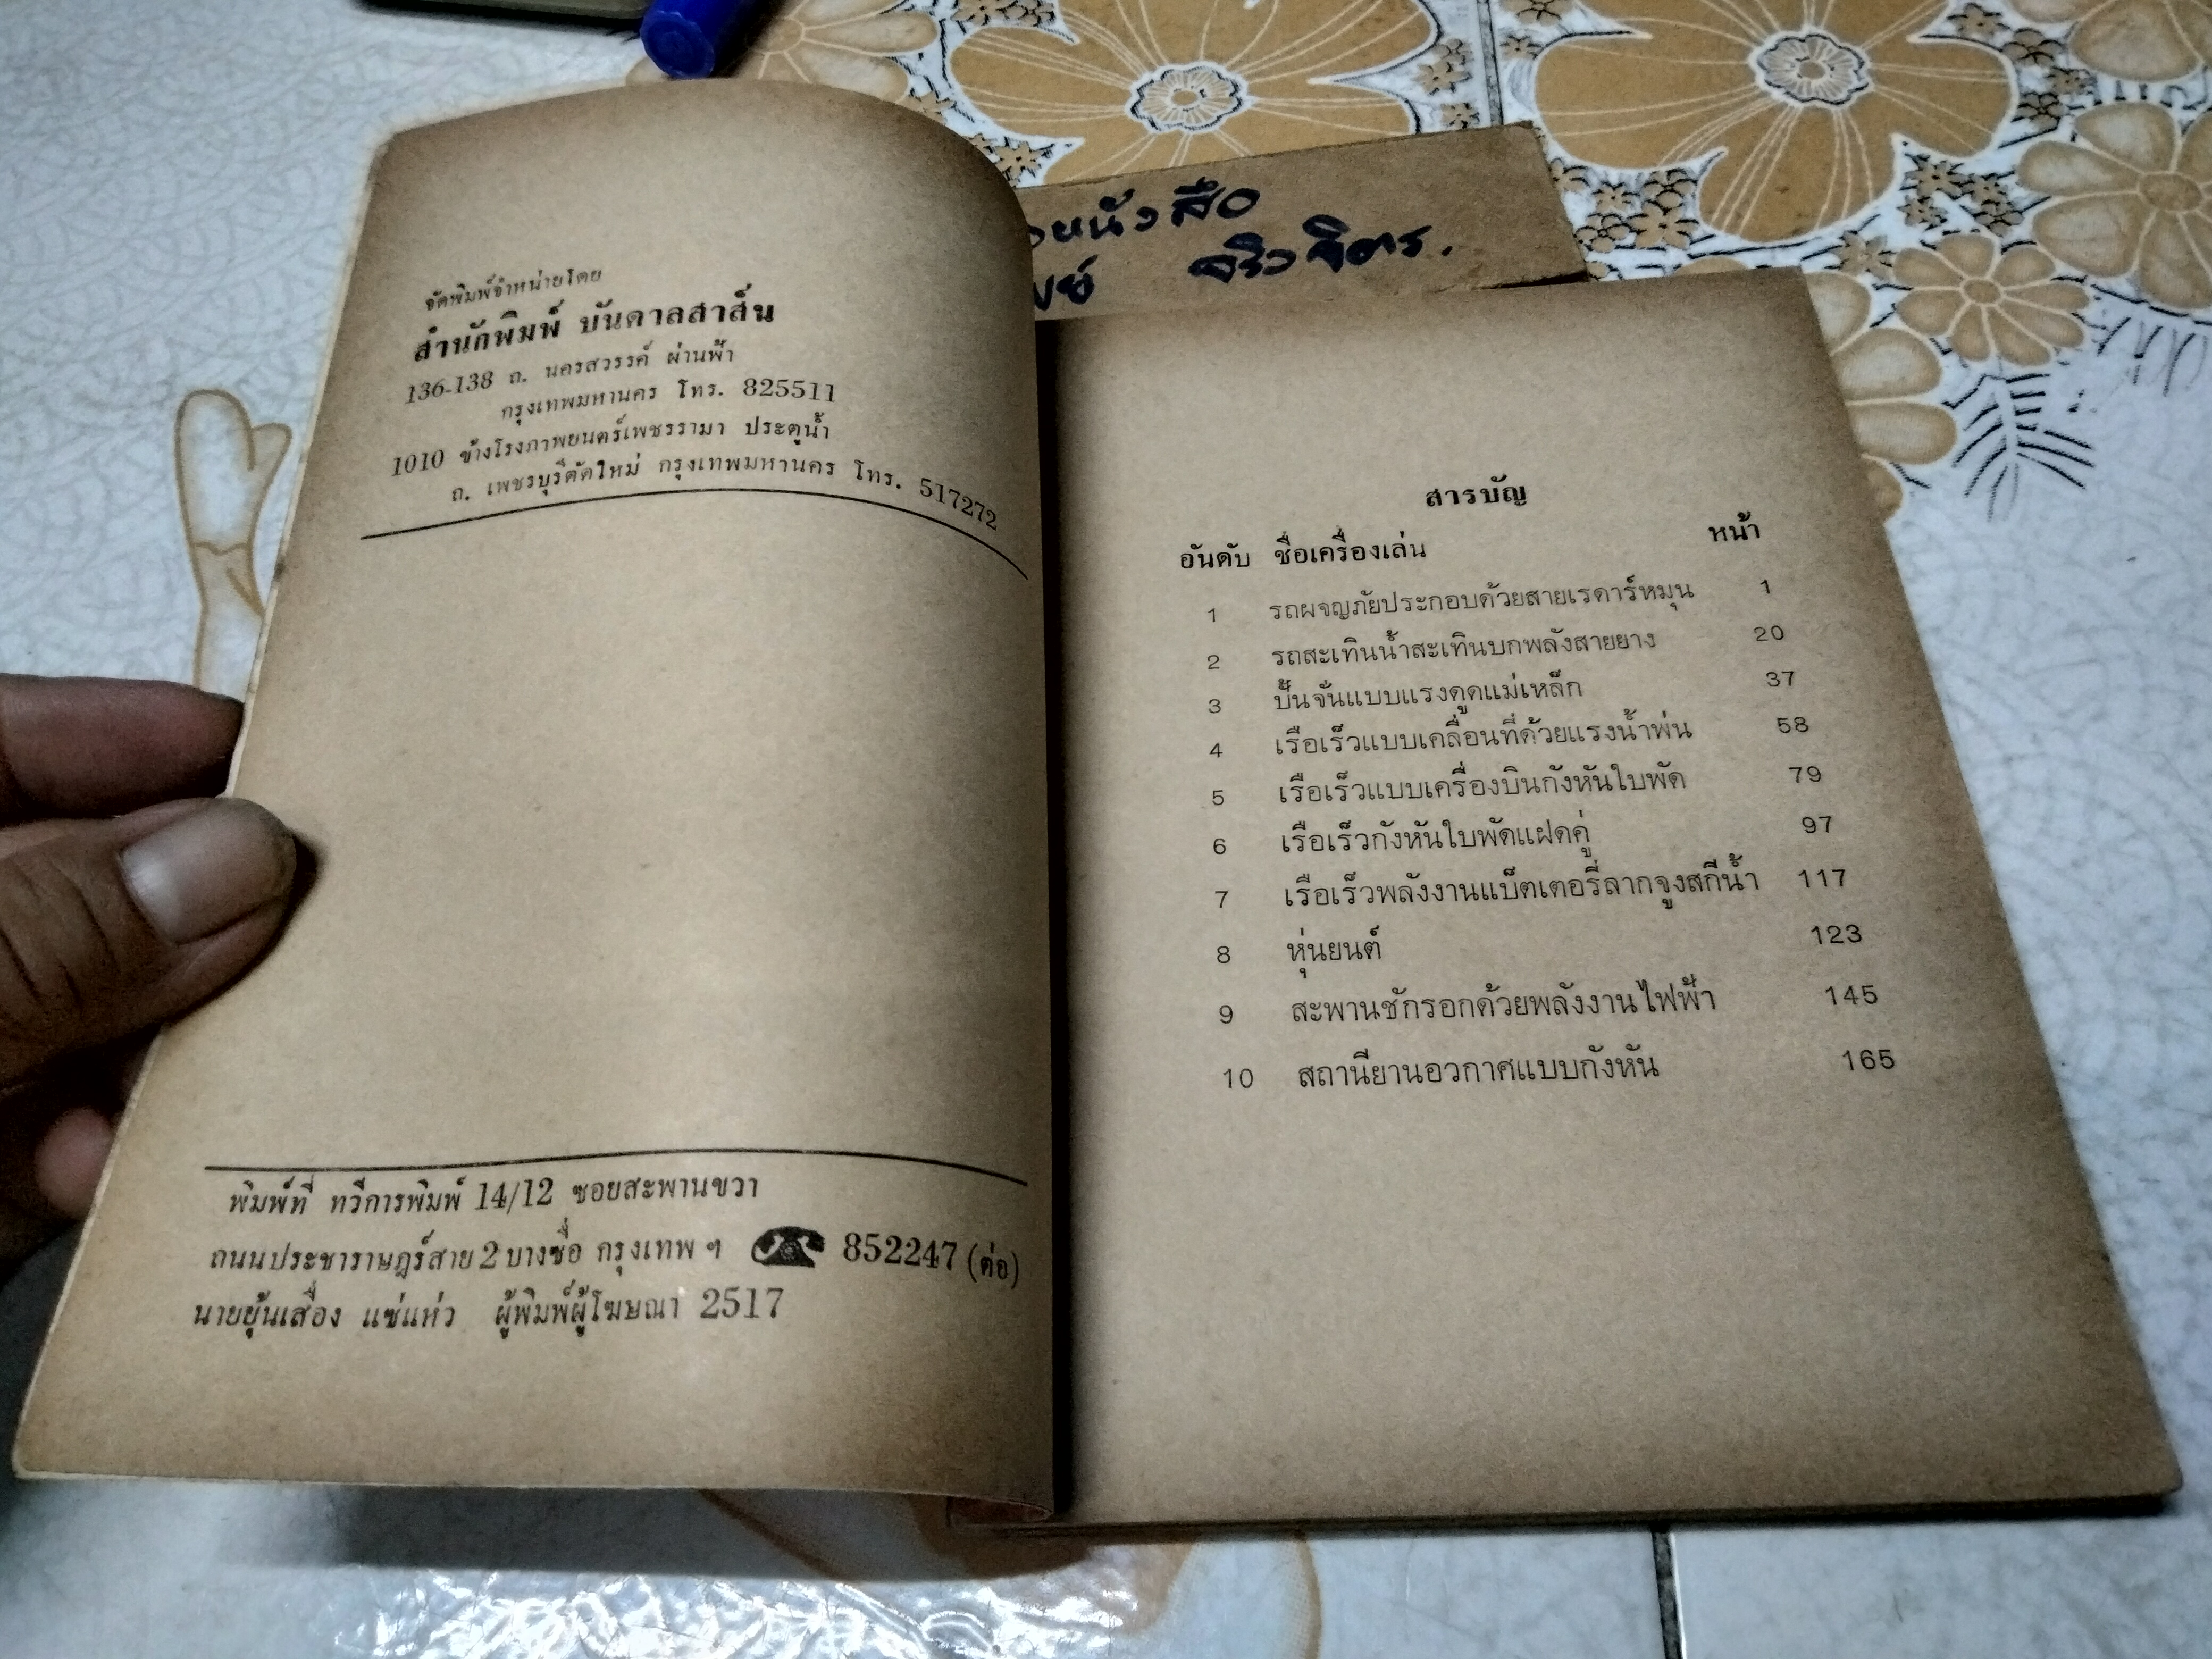 จัดพิมพ์จำหน่ายโดย
สำนักพิมพ์ บันดาลสาส์น
136-138 ถ. นครสวรรค์ ผ่านฟ้า
กรุงเทพมหานคร โทร. 825511
1010 ข้างโรงภาพยนตร์เพชรรามา ประตูน้ำ
ถ. เพชรบุรีตัดใหม่ กรุงเทพมหานคร โทร. 517272
พิมพ์ที่ ทวีการพิมพ์ 14/12 ซอยสะพานขวา
ถนนประชาราษฎร์สาย 2 บางซื่อ กรุงเทพ ฯ 852247 (ต่อ)
นายยุ้นเสื่อง แซ่แห่ว ผู้พิมพ์ผู้โฆษณา 2517
หนังสือ
จริวจิตร.
สารบัญ
อันดับ ชื่อเครื่องเล่น หน้า
1 รถผจญภัยประกอบด้วยสายเรดาร์หมุน 1
2 รถสะเทินน้ำสะเทินบกพลังสายยาง 20
3 ปั้นจั่นแบบแรงดูดแม่เหล็ก 37
4 เรือเร็วแบบเคลื่อนที่ด้วยแรงน้ำพ่น 58
5 เรือเร็วแบบเครื่องบินกังหันใบพัด 79
6 เรือเร็วกังหันใบพัดแฝดคู่ 97
7 เรือเร็วพลังงานแบ็ตเตอรี่ลากจูงสกีน้ำ 117
8 หุ่นยนต์ 123
9 สะพานชักรอกด้วยพลังงานไฟฟ้า 145
10 สถานียานอวกาศแบบกังหัน 165